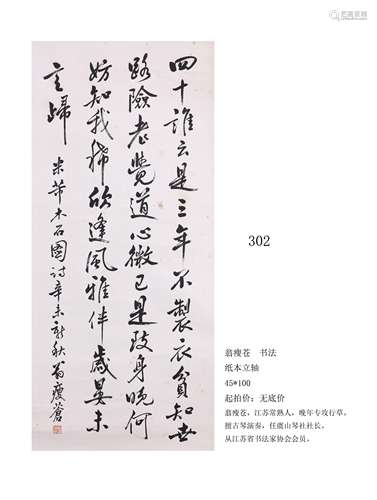 四十誰云是三年不製衣貧知世
路險老覺道心微已是致身晚何
妨知我稀欣逢風雅伴歲晏未
言歸 米芾木石圖詩辛未新秋翁瘦蒼
302
翁瘦苍 书法
纸本立轴
45*100
起拍价：无底价
翁瘦苍，江苏常熟人，晚年专攻行草，
擅古琴演奏，任虞山琴社社长，
从江苏省书法家协会会员。